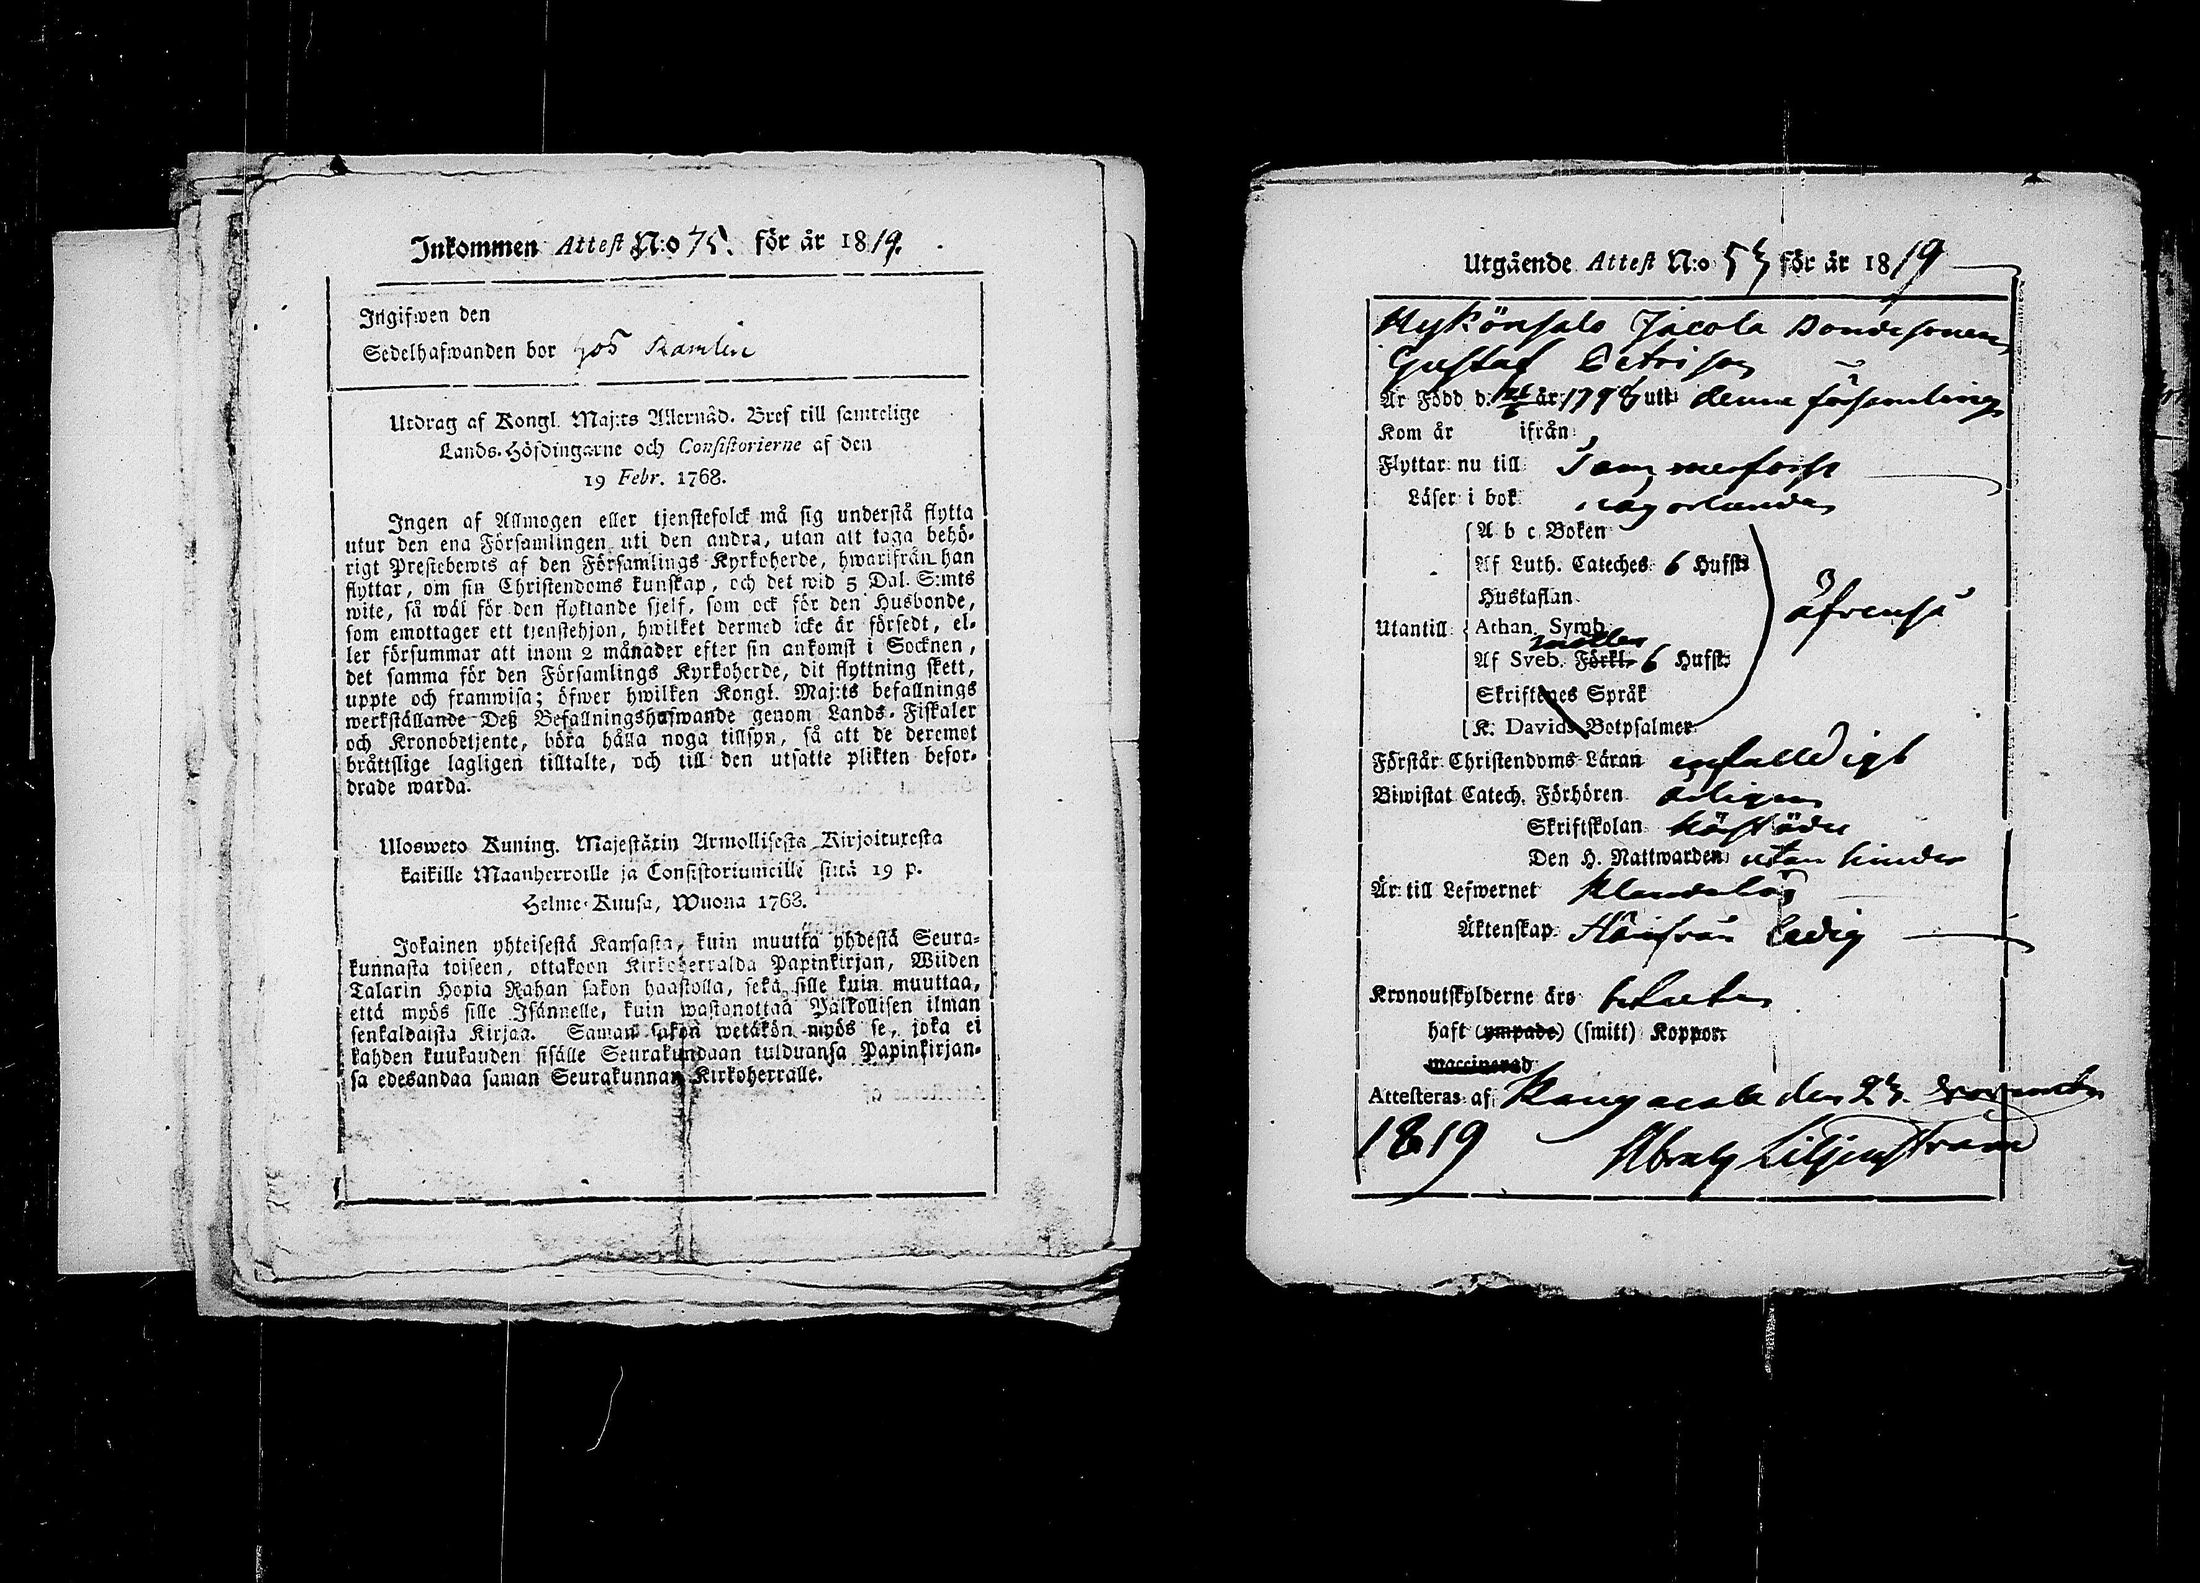 Inkommen Attest N:o 75. för år 1819.
Ingifwen den
Sedelhafwanden bor hos Ramlin
Utdrag af Kongl. Maj:ts Allernåd. Bref till samtelige
Lands-Höfdingarne och Consistorierne af den
19 Febr. 1768.
Ingen af Allmogen eller tjenstefolck må sig understå flytta
utur den ena Församlingen uti den andra, utan att taga behö-
rigt Prestebewis af den Församlings Kyrkoherde, hwarifrån han
flyttar, om sin Christendoms kunskap, och det wid 5 Dal. S:mts
wite, så wäl för den flyttande sjelf, som ock för den Husbonde,
som emottager ett tjenstehjon, hwilket dermed icke är försedt, el-
ler försummar att inom 2 månader efter sin ankomst i Socknen,
det samma för den Församlings Kyrkoherde, dit flyttning skett,
uppte och framwisa; öfwer hwilken Kongl. Maj:ts befallnings
werkställande Deß Befallningshafwande genom Lands-Fiskaler
och Kronobetjente, böra hålla noga tillsyn, så att de deremot
bråttslige lagligen tilltalte, och till den utsatte plikten befor-
drade warda.
Ulosweto Kuning. Majestätin Armollisesta Kirjoituxesta
kaikille Maanherroille ja Consistoriumeille siitä 19 p.
Helme-Kuusa, Wuona 1768.
Jokainen yhteisestä Kansasta, kuin muutta yhdestä Seura-
kunnasta toiseen, ottakoon Kirkoherralda Papinkirjan, Wiiden
Talarin Hopia Rahan sakon haastolla, sekä sille kuin muuttaa,
että myös sille Isännelle, kuin wastanottaa Palkollisen ilman
senkaldaista Kirjaa. Saman sakon wetäkön myös se, joka ei
kahden kuukauden sisälle Seurakundaan tulduansa Papinkirjan-
sa edesandaa saman Seurakunnan Kirkoherralle.
Utgående Attest N:o 53 för år 1819
Jacola Bondesonen
Gustaf Petrison
Är Född d. år 1798 uti denna församling
Kom år ifrån
Flyttar nu till Tammerfors
Läser i bok någorlunda
A b c Boken
Af Luth. Cateches 6 Hufst:
Hustaflan
Utantill Athan. Symb. äfvenså
Af Sveb. Förkl. 6 Hufst:
Skriftenes Språk
K. Davids Botpsalmer
Förstår Christendoms Läran enfalldigt
Biwistat Catech. Förhören årligen
Skriftskolan
Den H. Nattwarden utan hinder
Är till Lefwernet klanderlös
Äktenskap Härifrån ledig
Kronoutskylderne äro betalte
haft (ympade) (smitt) Koppor.
waccinerad
Attesteras af Kangasala den 23 November
1819 Abrah Liljenstråm